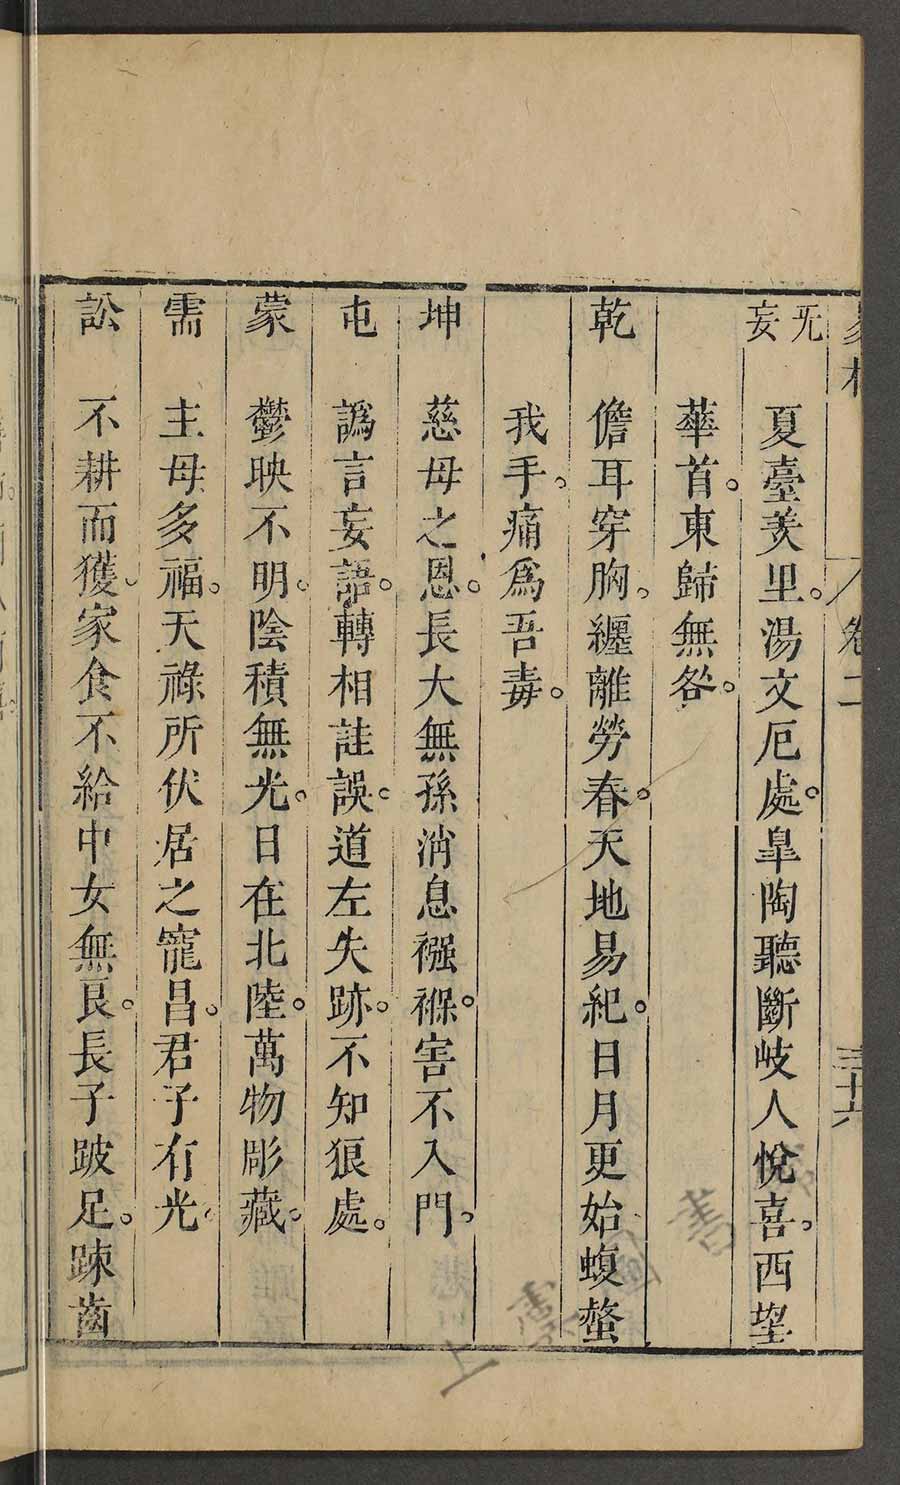 卷二
三十六
无妄　夏臺羑里湯文厄處皐陶聽斷岐人悅喜西望
華首東歸無咎
乾　儋耳穿胸纒離勞春天地易紀日月更始蝮螫
我手痛爲吾毒
坤　慈母之恩長大無孫消息襁褓害不入門
屯　譌言妄語轉相詿誤道左失跡不知狼處
蒙　鬱映不明陰積無光日在北陸萬物彫藏
需　主母多福天祿所伏居之寵昌君子有光
訟　不耕而獲家食不給中女無良長子跛足踈齒